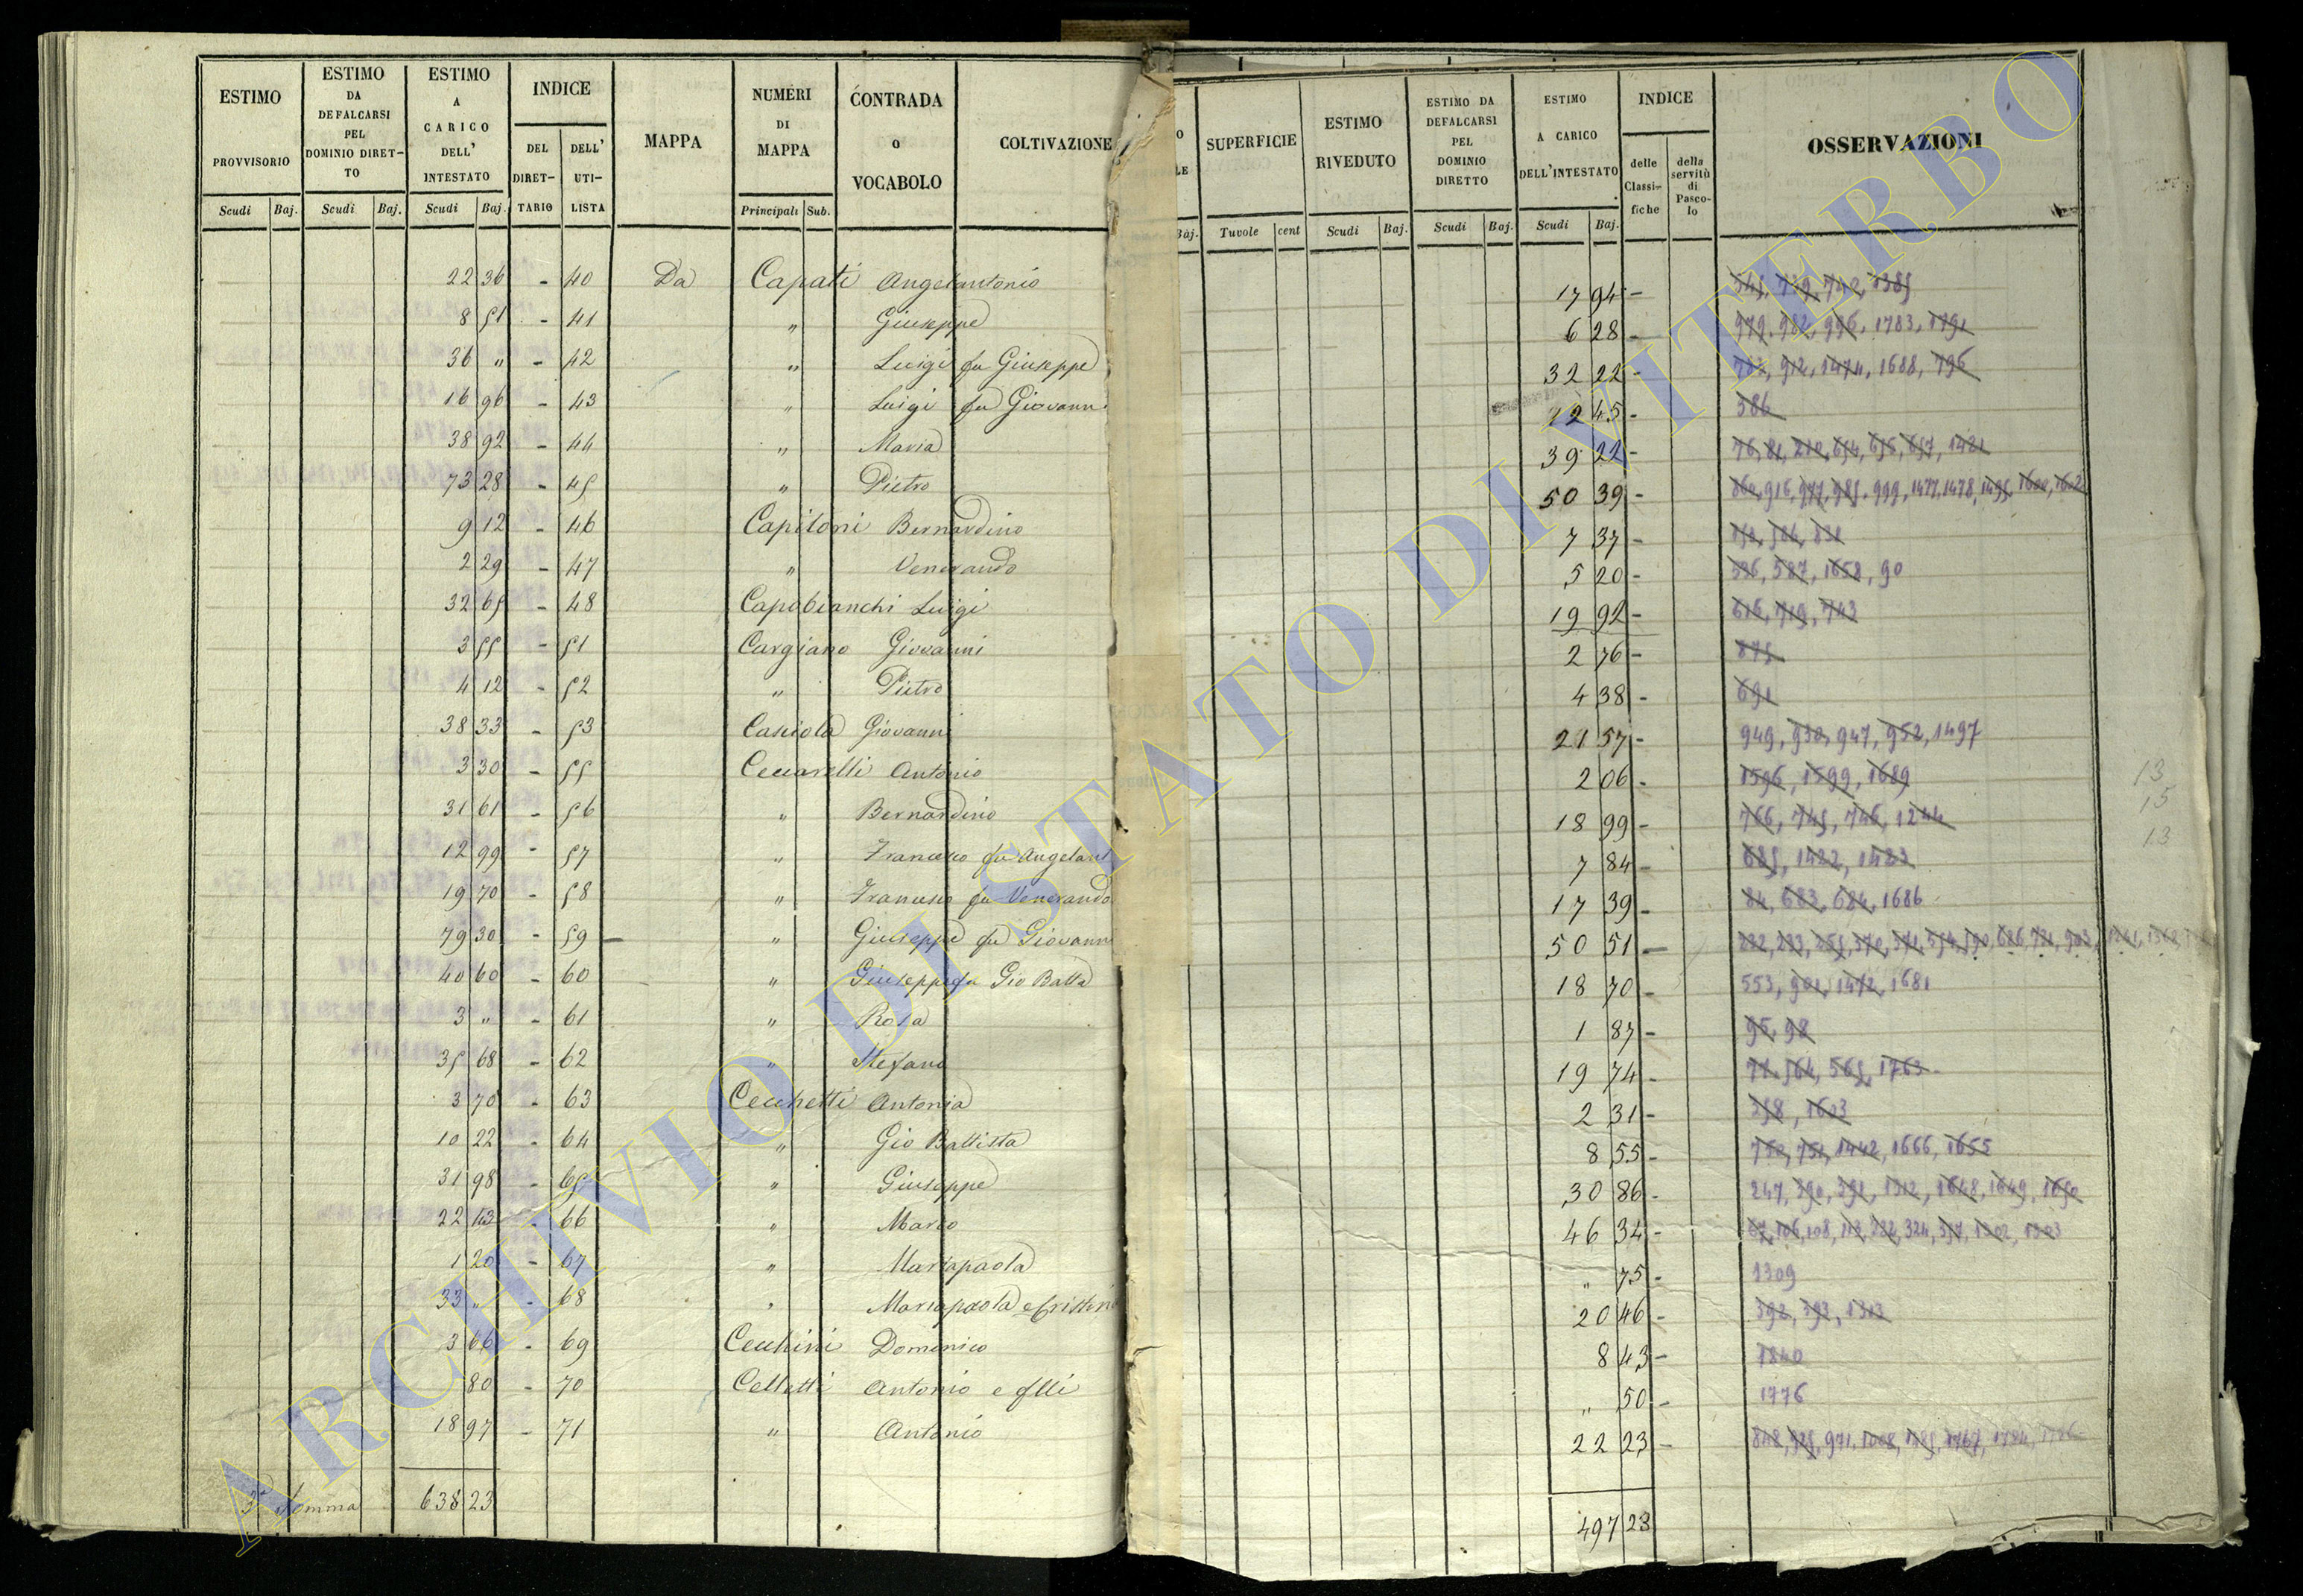 ESTIMO PROVVISORIO Scudi Baj.
ESTIMO DA DEFALCARSI PEL DOMINIO DIRET-TO Scudi Baj.
ESTIMO A CARICO DELL' INTESTATO Scudi Baj.
INDICE DEL DIRET-TARIO DELL' UTI-LISTA
MAPPA
NUMERI DI MAPPA Principali Sub.
CONTRADA o VOCABOLO
COLTIVAZIONE
O LE Baj.
SUPERFICIE Tavole cent
ESTIMO RIVEDUTO Scudi Baj.
ESTIMO DA DEFALCARSI PEL DOMINIO DIRETTO Scudi Baj.
ESTIMO A CARICO DELL'INTESTATO Scudi Baj.
INDICE delle Classi-fiche della servitù di Pasco-lo
OSSERVAZIONI
22 36 - 40 Da Capati Angelantonio 17 94 - 739, 1385
8 51 - 41 " Giuseppe 6 28 - 979, 982, 996, 1783, 1791
36 " - 42 " Luigi fu Giuseppe 32 22 - 912, 1474, 1688, 796
16 96 - 43 " Luigi fu Giovanni 12 45 - 386
38 92 - 44 " Maria 39 22 - 76, 81, 210, 654, 697, 1421
73 28 - 45 " Pietro 50 39 - 916, 977, 985, 999, 1477, 1478, 1495, 1600, 1602
9 12 - 46 Capitoni Bernardino 7 37 -
2 29 - 47 " Venerando 5 20 - 587, 1658, 90
32 65 - 48 Capobianchi Luigi 19 92 - 616, 719, 743
3 55 - 51 Cargiano Giovanni 2 76 - 875
4 12 - 52 " Pietro 4 38 - 691
38 33 - 53 Casciola Giovanni 21 57 - 949, 930, 947, 952, 1497
3 30 - 55 Ceccarelli Antonio 2 06 - 1596, 1599, 1689
31 61 - 56 " Bernardino 18 99 - 766, 745, 746, 1244
12 99 - 57 " Francesco fu Angelant 7 84 - 685, 1422, 1423
19 70 - 58 " Francesco fu Venerando 17 39 - 84, 683, 684, 1686
79 30 - 59 " Giuseppe fu Giovanni 50 51 - 232, 233, 255
40 60 - 60 " Giuseppe fu Gio Batta 18 70 - 553, 901, 1472, 1681
3 " - 61 " Rosa 1 87 - 95, 98
35 68 - 62 " Stefano 19 74 - 564, 565, 1763
3 70 - 63 Cecchetti Antonia 2 31 - 1603
10 22 - 64 " Gio Battista 8 55 - 750, 751, 1442, 1666, 1655
31 98 - 65 " Giuseppe 30 86 - 247, 390, 391, 1312, 1648, 1649, 1650
22 43 - 66 " Marco 46 34 - 67, 106, 108, 113, 322, 324, 317, 1302, 1303
1 20 - 67 " Mariapaola " 75 - 1309
33 " - 68 " Mariapaola e Cristina 20 46 - 392, 393, 1313
3 66 - 69 Cecchini Domenico 8 43 - 1840
80 - 70 Celletti Antonio e flli " 50 - 1776
18 97 - 71 " Antonio 22 23 - 848, 925, 971, 1008, 1767, 1784
3ª Somma 638 23 497 23
13
15
13
ARCHIVIO DI STATO DI VITERBO